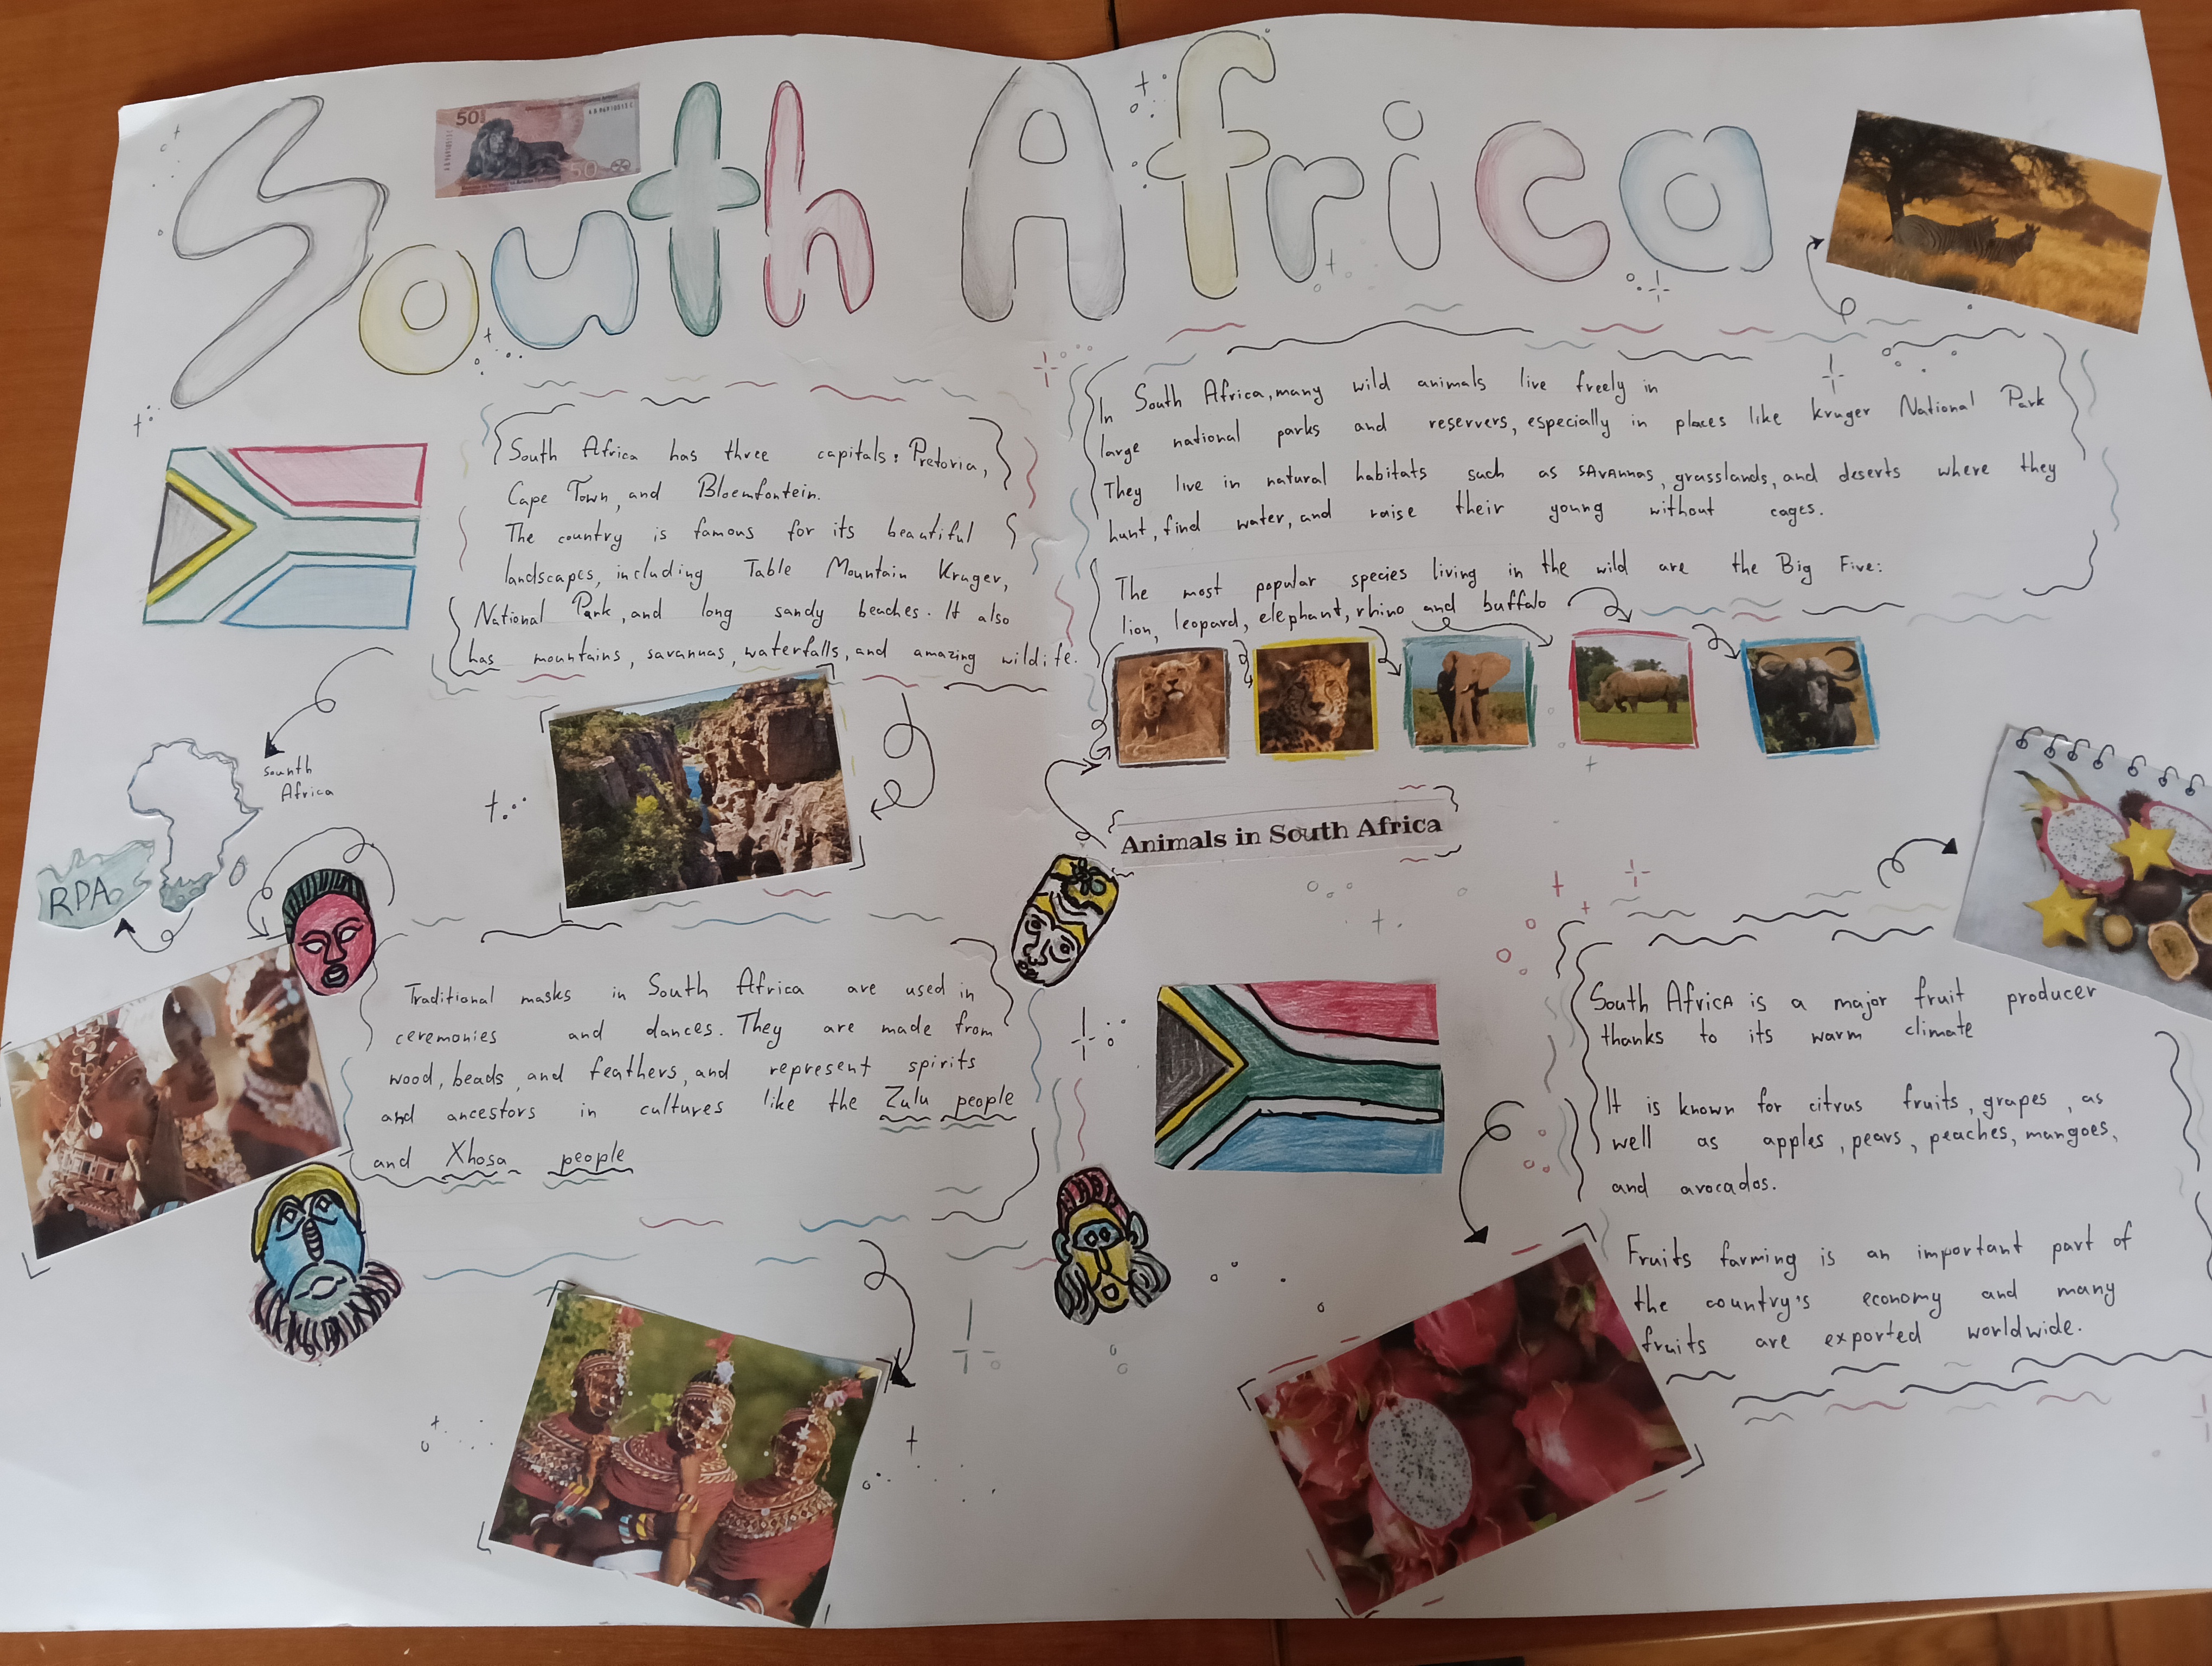 South Africa
50
50
South Africa has three capitals: Pretoria,
Cape Town, and Bloemfontein.
The country is famous for its beautiful
landscapes, including Table Mountain Kruger,
National Park, and long sandy beaches. It also
has mountains, savannas, waterfalls, and amazing wildife.
In South Africa, many wild animals live freely in
large national parks and reservers, especially in places like kruger National Park
They live in natural habitats such as SAvAnnas, grasslands, and deserts where they
hunt, find water, and raise their young without cages.
The most popular species living in the wild are the Big Five:
lion, leopard, elephant, rhino and buffalo
Sounth
Africa
RPA
Animals in South Africa
Traditional masks in South Africa are used in
ceremonies and dances. They are made from
wood, beads, and feathers, and represent spirits
and ancestors in cultures like the Zulu people
and Xhosa people
South AfricA is a major fruit producer
thanks to its warm climate
It is known for citrus fruits, grapes, as
well as apples, pears, peaches, mangoes,
and avocados.
Fruits farming is an important part of
the country's economy and many
fruits are exported worldwide.